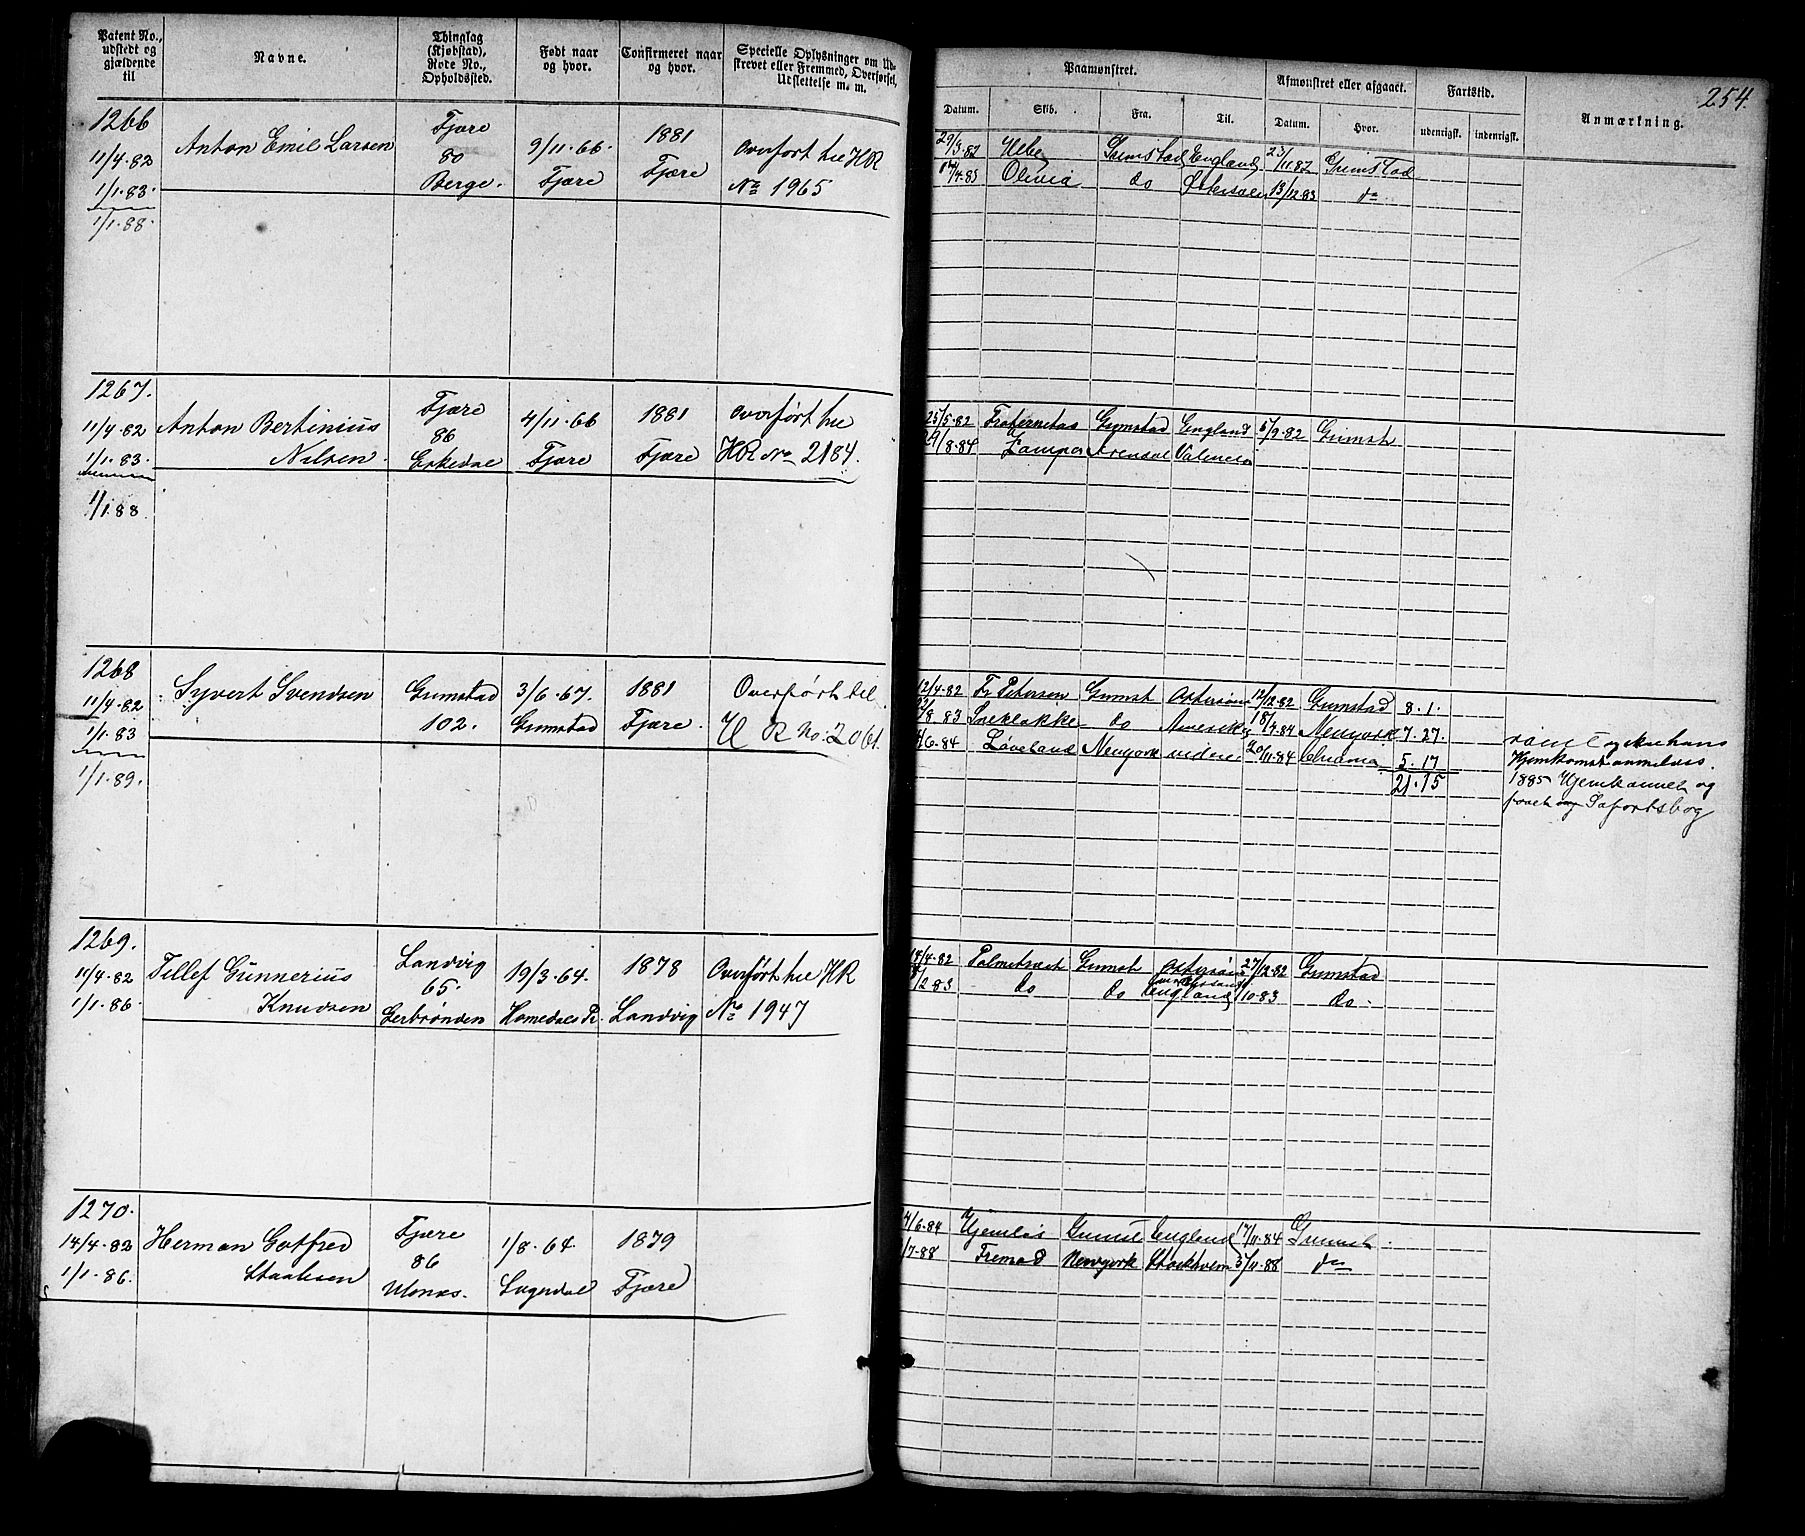 Patent No., udstedt og gjældende til
Navne.
Thinglag (Kjøbstad), Rode No., Opholdssted.
Født naar og hvor.
Confirmeret naar og hvor.
Specielle Oplysninger om Udskrevet eller Fremmed, Overførsel, Udslettelse m. m.
Paamønstret.
Datum.
Skib.
Fra.
Til.
Afmønstret eller afgaaet.
Datum.
Hvor.
Fartstid.
udenrigsk.
indenrigsk.
Anmærkning.
254.
1266
11/4.82
1/1.83.
1/1.88.
Anton Emil Larsen
Fjære
80
Berge.
9/11.66.
Fjære
1881
Fjære
Overført til HR
No 1965
29/3.82 Hebe Grimstad England 23/11.82 Grimstad
4/4.83 Olivia do Østersøen 13/12.83 do
1267.
11/4.82
1/1.83.
1/1.88.
Anton Bertinius
Nilsen.
Fjære
86
4/11.66
Fjære
1881
Fjære
Overført til
HR No 2184.
25/5.82 Fraternitas Grimstad England 5/9.82 Grimst
29/8.84 Arendal Valencia
1268
11/4.82
1/1.83
1/1.89.
Syvert Svendsen
Grimstad
102.
3/6.67.
Grimstad
1881
Fjære.
Overført til
H R No: 2061.
12/4.82 Fr Petersen Grimst Østersøen 12/12.82 Grimstad 8.1.
8 83 do Amerika 18/7.84 Newyork 7.27.
6.84 Løveland Newyork videre 20/11.84 Chrania 5.17
21.15
1885 Hjemkommet og
Søfartsbog
1269.
11/4.82
1/1.86.
Tellef Gunnerius
Knudsen
Landvig
65.
Gerbrønden
19/3.64.
Homedals Pr.
1878
Landvig
Overført til HR
No 1947
14/4.82 Palmetræet Grimst Østersøen 27/12.82 Grimstad
2.83 do do England /10.83 do.
1270.
14/4.82
1/1.86.
Herman Gotfred
Staalesen
Fjære
86
Usnæs.
1/8.64.
Sogndal
1879
Fjære
4/6.84 Hjemløs Grimst England 17/11.84 Grimst.
/7.88 Fremad Newyork Stockholm 5/11.88 do